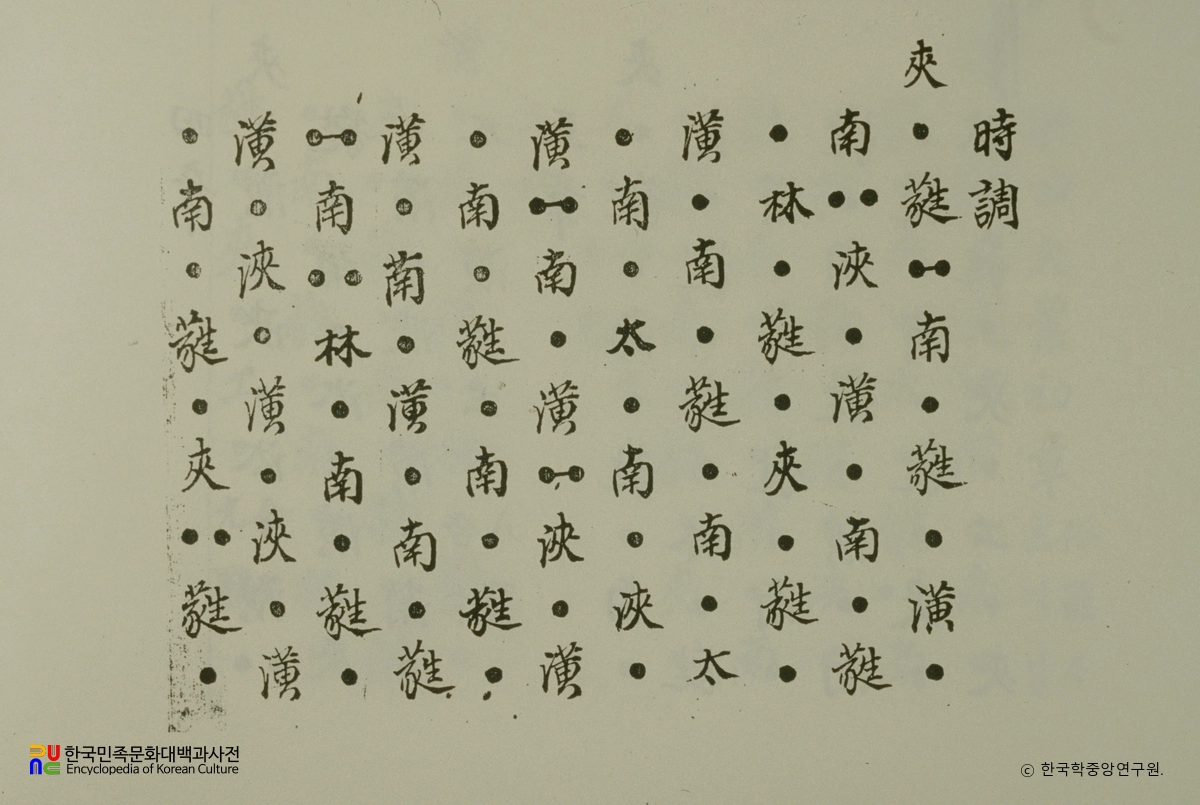 時調
夾●蕤●-●南●蕤●潢●
南●●浹●潢●南●蕤
●林●蕤●夾●蕤●
潢●南●蕤●南●太
●南●太●南●浹●
潢●-●南●潢●-●浹●潢
●南●蕤●南●蕤●
潢●南●潢●南●蕤
●-●南●●林●南●蕤●
潢●浹●潢●浹●潢
●南●蕤●夾●●蕤●
한국민족문화대백과사전
Encyclopedia of Korean Culture
ⓒ 한국학중앙연구원.